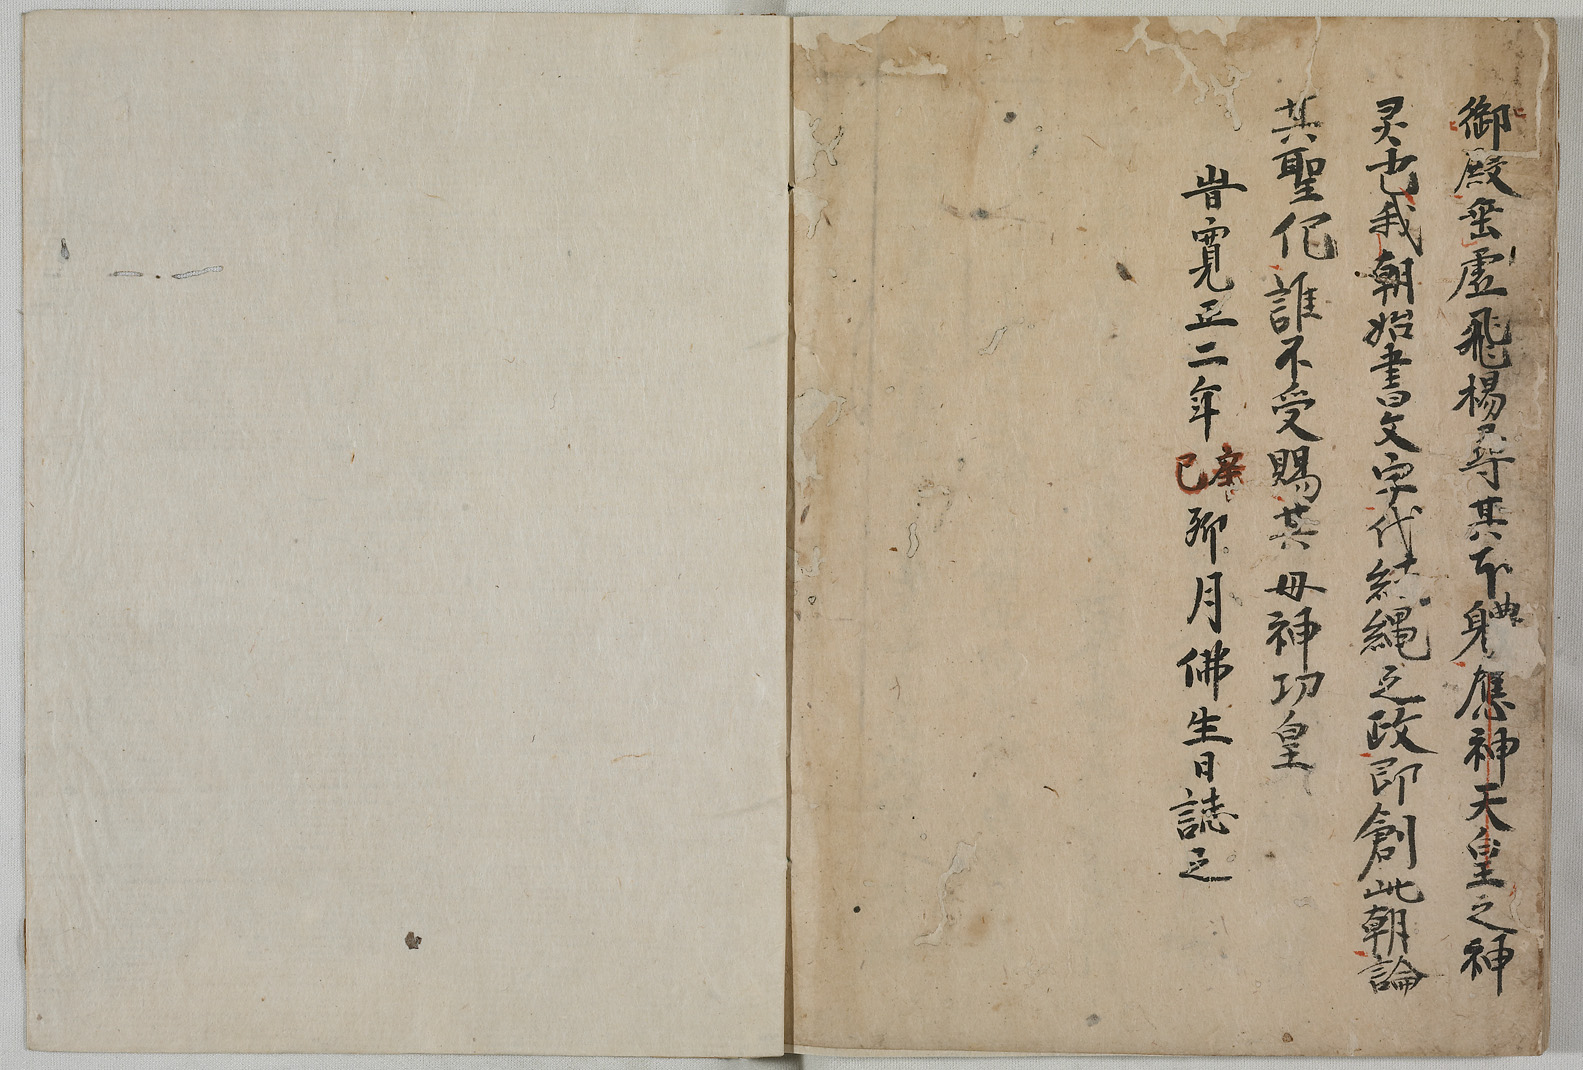 御殿垂虚飛楊尋其所典身應神天皇之神
灵也我朝始書文字代結縄之政即創此朝論
其聖化誰不受賜其母神功皇
旹寛正二年辛巳卯月佛生日誌之